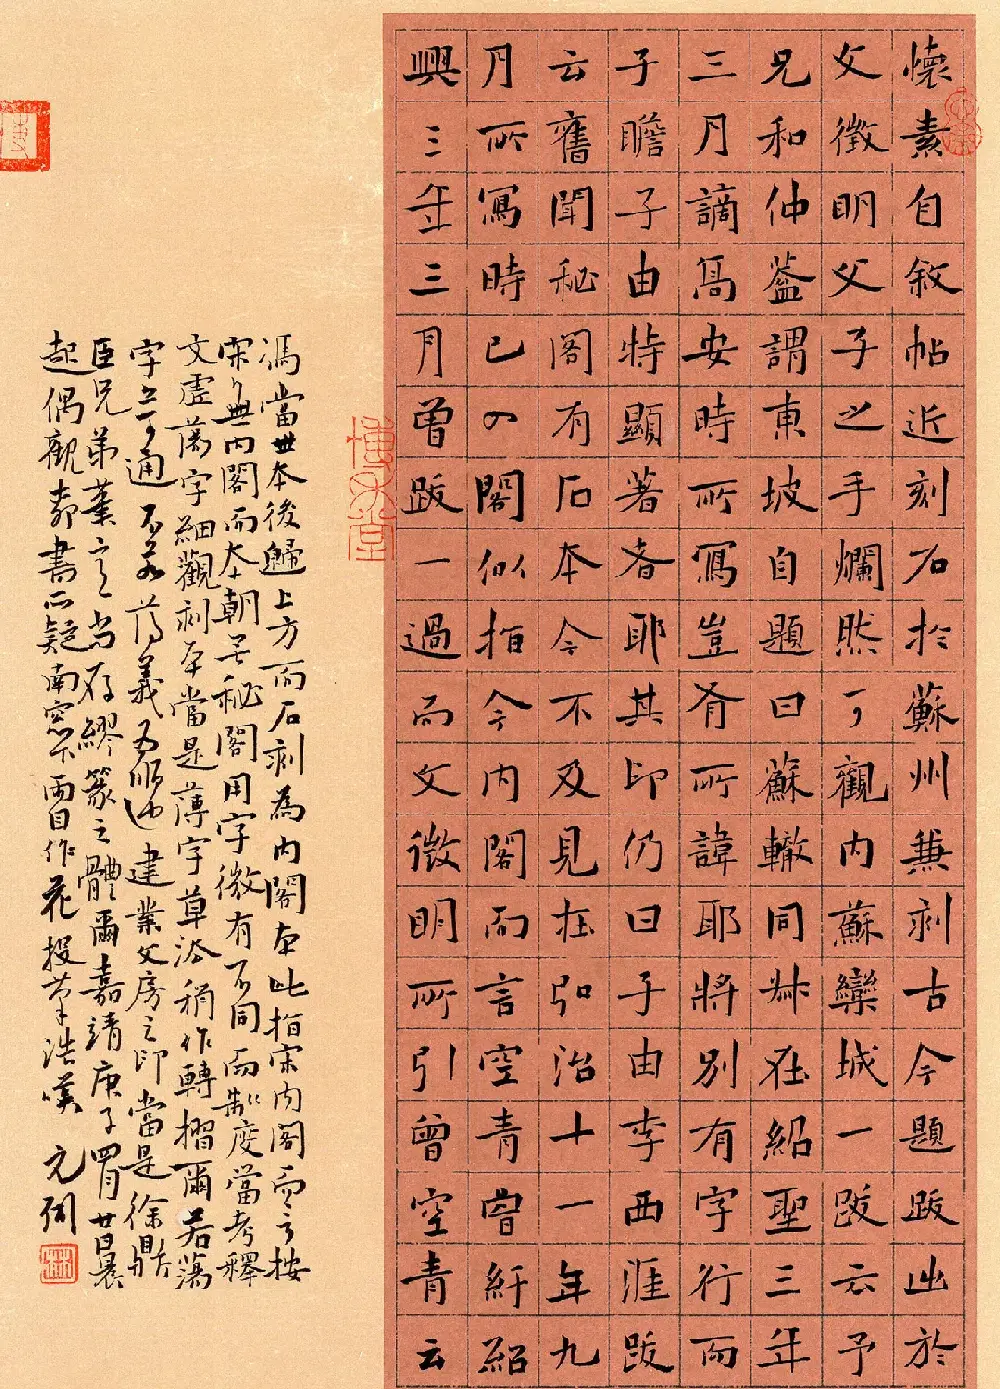 懷素自敘帖近刻石於蘇州兼刻古今題跋出於
文徵明父子之手爛然可觀內蘇欒城一跋云予
兄和仲蓋謂東坡自題曰蘇轍同叔在紹聖三年
三月謫高安時所寫豈有所諱耶將別有字行而
子瞻子由特顯著者耶其印仍曰子由李西涯跋
云舊聞秘閣有石本今不及見在弘治十一年九
月所寫時已的閣似指今內閣而言空青曾紆紹
興三年三月曾跋一過而文徵明所引曾空青云
馮當世本後歸上方而石刻為內閣本此指宋內閣而言按
宋無內閣而本朝無秘閣用字微有不同而制度當考釋
文虛蕩字細觀刻本當是薄字草法稍作轉摺爾若蕩
字亦可通不若薄義為順也建業文房之印當是徐鼎
臣兄弟輩之尚存繆篆之體爾嘉靖庚子四月廿日晨
起偶觀素書所疑南窗下酉目作花投筆浩嘆 元